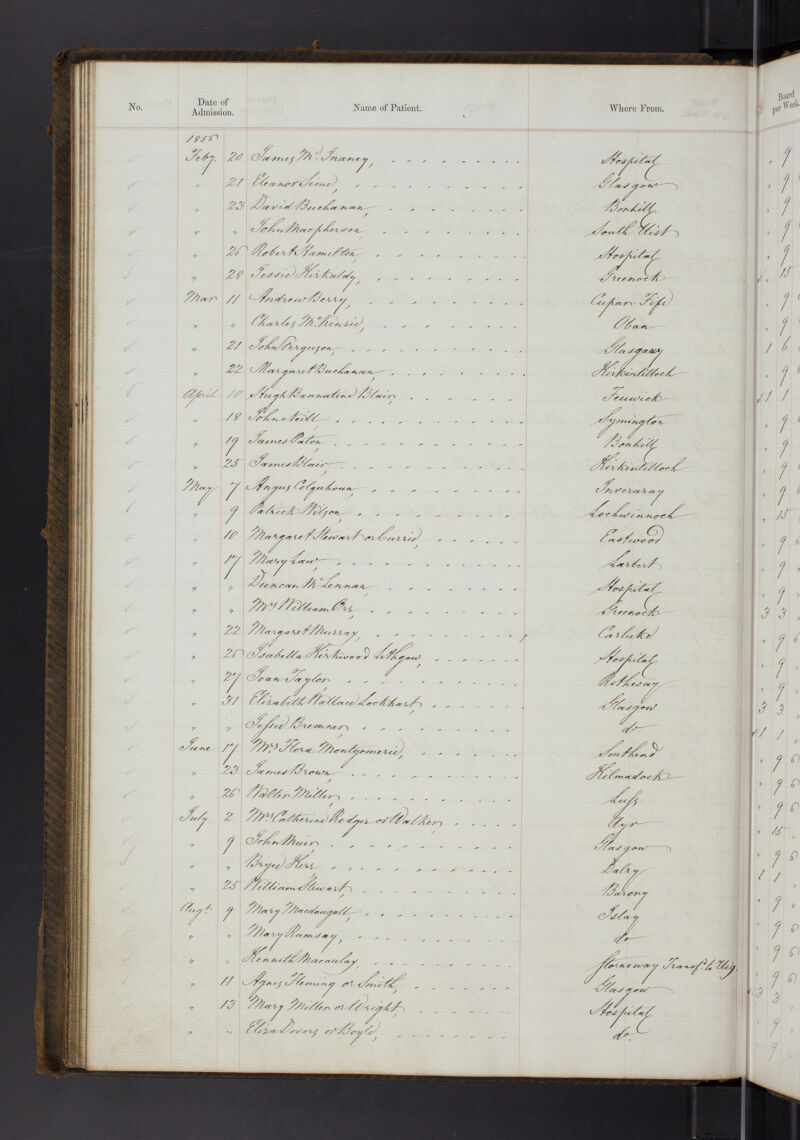 No. Date of Admission. Name of Patient. Where From.
Board per Week.
1856
Feby 20 James Mc Inaney, Hospital 9
" 21 Eleanor Sime, Glasgow 9
" 23 David Buchanan, Bonhill 9
" " John Macpherson South Uist 9
" 26 Robert Hamilton, Hospital 9
" 28 Jessie Kirkaldy, Greenock 15
Mar 11 Andrew Berry, Cupar Fife 9
" " Charles McKinsie, Oban 9
" 21 John Ferguson, Glasgow 1 6
" 22 Margaret Buchanan, Kirkintilloch 9
April 10 Hugh Bannatine Blair, Fenwick 1 1
" 18 John Neill Symington 9
" 19 James Paton, Bonhill 9
" 25 James Blair, Kirkintilloch 9
May 7 Angus Colquhoun, Inveraray 9 6
" 9 Patrick Wilson, Lochwinnoch 15
" 10 Margaret Stewart or Currie, Eastwood 9 6
" 17 Mary Law, Larbert 9
" " Duncan McLennan Hospital 9
" " Mrs William Orr, Greenock 3 3
" 22 Margaret Murray, Carluke 9 6
" 26 Isabella Kirkwood Lithgow, Hospital 9
" 27 Joan Taylor Rothesay 9
" 31 Elizabeth Wallace Lockhart, Glasgow 3 3
" " Jessie Bremner, do 1 1
June 17 Mrs Flora Montgomerie, Southend 9 6
" 23 James Brown, Kilmadock 9 6
" 26 Walter Miller, Luss 9 6
July 2 Mrs Catherine Rodger or Walker Ayr 15
" 9 John Muir, Glasgow 9 6
" " Bryce Kerr Dalry 1 1
" 25 William Stewart, Barony 9
Augt 9 Mary Macdougall Islay 9 6
" " Mary Ramsay, do 9 6
" " Kenneth Macaulay Stornoway Transfd to Uig. 9 6
" 11 Agnes Fleming or Smith, Glasgow 3 3
" 13 Mary Miller or Wright, Hospital 9
" " Eliza Dovers or Boyle, do. 9